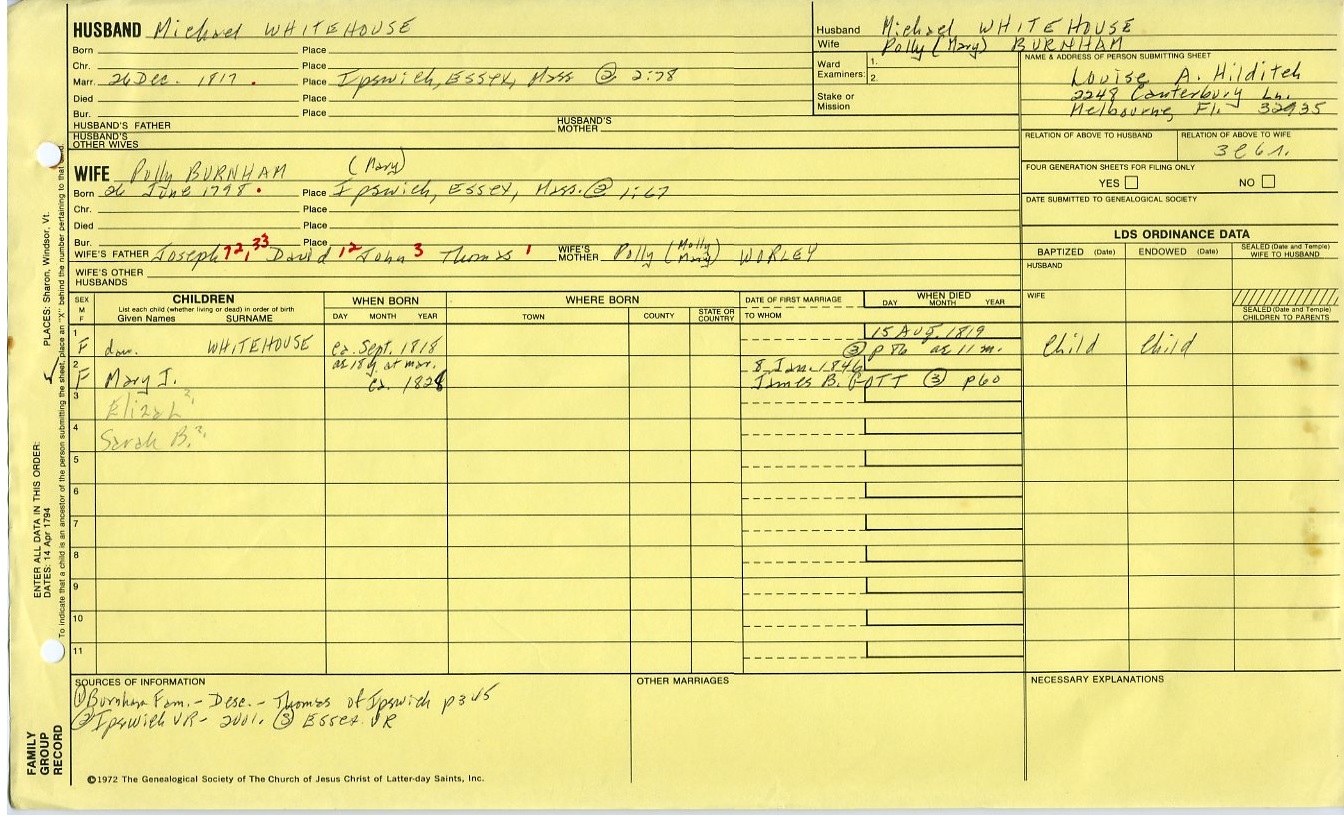 HUSBAND Michael WHITEHOUSE
Born Place
Chr. Place
Marr. 26 Dec. 1817. Place Ipswich, Essex, Mass ② 2:78
Died Place
Bur. Place
HUSBAND'S FATHER HUSBAND'S MOTHER
HUSBAND'S OTHER WIVES
Husband Michael WHITEHOUSE
Wife Polly (Mary) BURNHAM
Ward Examiners: 1.
2.
Stake or Mission
NAME & ADDRESS OF PERSON SUBMITTING SHEET
Louise A. Hilditch
2248 Canterbury Ln.
Melbourne, Fl. 32935
RELATION OF ABOVE TO HUSBAND RELATION OF ABOVE TO WIFE
FOUR GENERATION SHEETS FOR FILING ONLY
YES NO
DATE SUBMITTED TO GENEALOGICAL SOCIETY
WIFE Polly BURNHAM (Mary)
Born 26 June 1798. Place Ipswich, Essex, Mass. ② 1:67
Chr. Place
Died Place
Bur. Place
WIFE'S FATHER Joseph 72,33 David 12 John 3 Thomas 1 WIFE'S MOTHER Polly (Molly Mary) WORLEY
WIFE'S OTHER HUSBANDS
LDS ORDINANCE DATA
BAPTIZED (Date) ENDOWED (Date) SEALED (Date and Temple) WIFE TO HUSBAND
HUSBAND
WIFE
SEALED (Date and Temple) CHILDREN TO PARENTS
SEX M F CHILDREN List each child (whether living or dead) in order of birth Given Names SURNAME
WHEN BORN DAY MONTH YEAR
WHERE BORN TOWN COUNTY STATE OR COUNTRY
DATE OF FIRST MARRIAGE TO WHOM
WHEN DIED DAY MONTH YEAR
1 15 Aug. 1819
F dau. WHITEHOUSE ca. Sept. 1818 ③ p 86 ae 11 m. Child Child
2 ae 18y at mar. 8 Jan. 1846
F Mary J. ca. 1828 James B. GOTT ③ p60
3 Eliza L?
4 Sarah B.?
5
6
7
8
9
10
11
SOURCES OF INFORMATION
① Burnham Fam.- Desc.- Thomas of Ipswich p345
② Ipswich VR- ③ Essex VR
OTHER MARRIAGES
NECESSARY EXPLANATIONS
©1972 The Genealogical Society of The Church of Jesus Christ of Latter-day Saints, Inc.
FAMILY GROUP RECORD
ENTER ALL DATA IN THIS ORDER:
DATES: 14 Apr 1794 PLACES: Sharon, Windsor, Vt.
To indicate that a child is an ancestor of the person submitting the sheet, place an "X" behind the number pertaining to that child.